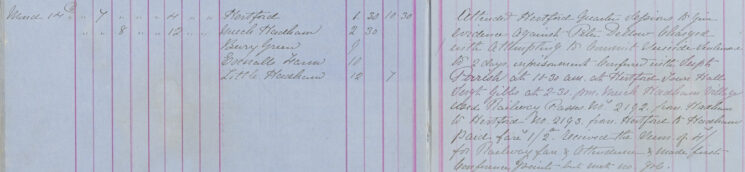 March 14th " 7 " " " 4 " " Hertford 1 30 10 30
" " 8 " " 12 " " Much Hadham 2 30
Bury Green 9
Farm 10
Little Hadham 12 7
Attended Hertford Quarter Sessions to give
evidence against Peter Dellow Charged
with Attempting to Commit Suicide
to 2 days imprisonment Conferred with Supt
at 10-30 am. at Hertford Town Hall
Supt Gibbs at 2-30 pm. Much Hadham Village
Used Railway Passes No 2192. from Hadham
to Hertford No. 2193. from Hertford to Hadham
paid fare 1/2d. Received the Sum of 4/
for Railway fare & Attendance & made first
Conference Point but met no Sgt.